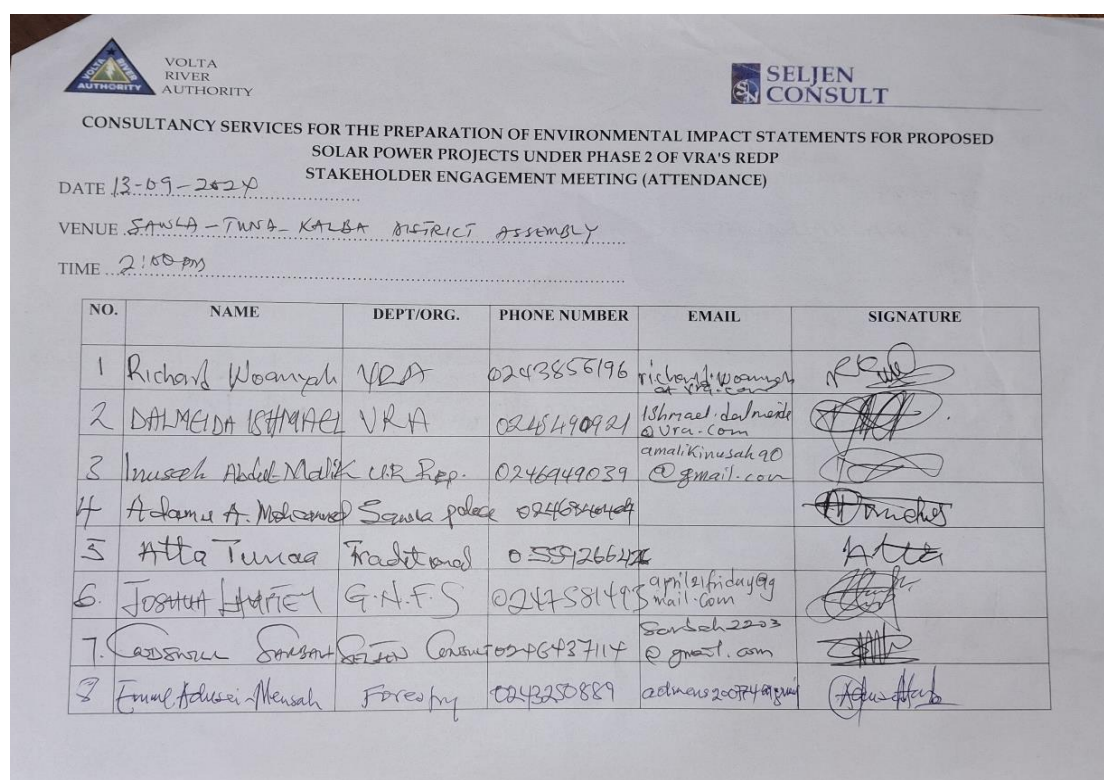 VOLTA
RIVER
AUTHORITY
VOLTA RIVER
AUTHORITY
SELJEN
CONSULT
CONSULTANCY SERVICES FOR THE PREPARATION OF ENVIRONMENTAL IMPACT STATEMENTS FOR PROPOSED
SOLAR POWER PROJECTS UNDER PHASE 2 OF VRA'S REDP
STAKEHOLDER ENGAGEMENT MEETING (ATTENDANCE)
DATE 13-09-2024
VENUE SAWLA-TUNA-KALBA DISTRICT ASSEMBLY
TIME 2:00pm
NO. NAME DEPT/ORG. PHONE NUMBER EMAIL SIGNATURE
1 Richard Woanyah VRA 0243856196 richard.woanyah
at vra.com
2 DALMEIDA ISHMAEL VRA 0245490921 Ishmael.dalmeida
@vra.com
3 Inusah Abdul Malik U.R Rep. 0246949039 amalikinusah90
@gmail.com
4 Adamu A. Mohammed Sawla palace
5 Atta Tunaa Traditional
6. JOSHUA G.N.F.S april21friday@g
mail.com
7. SARBAH SELJEN Consult 0246437114 Sarbah2203
@gmail.com
8 Adusei-Mensah Forestry 0243250889